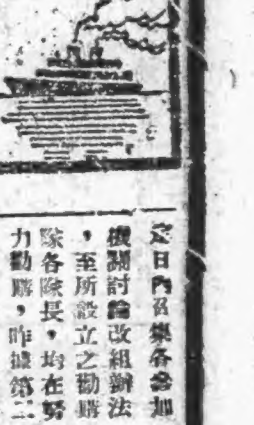 定日內召集各參加
機關討論改組辦法
，至所設立之勸購
隊各隊長，均在努
力勸購，昨據第二